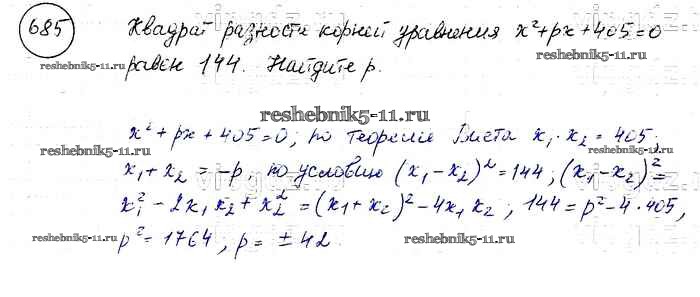 685
Квадрат разности корней уравнения x²+px+405=0
равен 144. Найдите p.
reshebnik5-11.ru
reshebnik5-11.ru
reshebnik5-11.ru
x²+px+405=0; по теореме Виета x₁·x₂=405;
x₁+x₂=-p, по условию (x₁-x₂)²=144; (x₁-x₂)²=
x₁²-2x₁x₂+x₂²=(x₁+x₂)²-4x₁x₂; 144=p²-4·405,
p²=1764; p=±42.
reshebnik5-11.ru
reshebnik5-11.ru